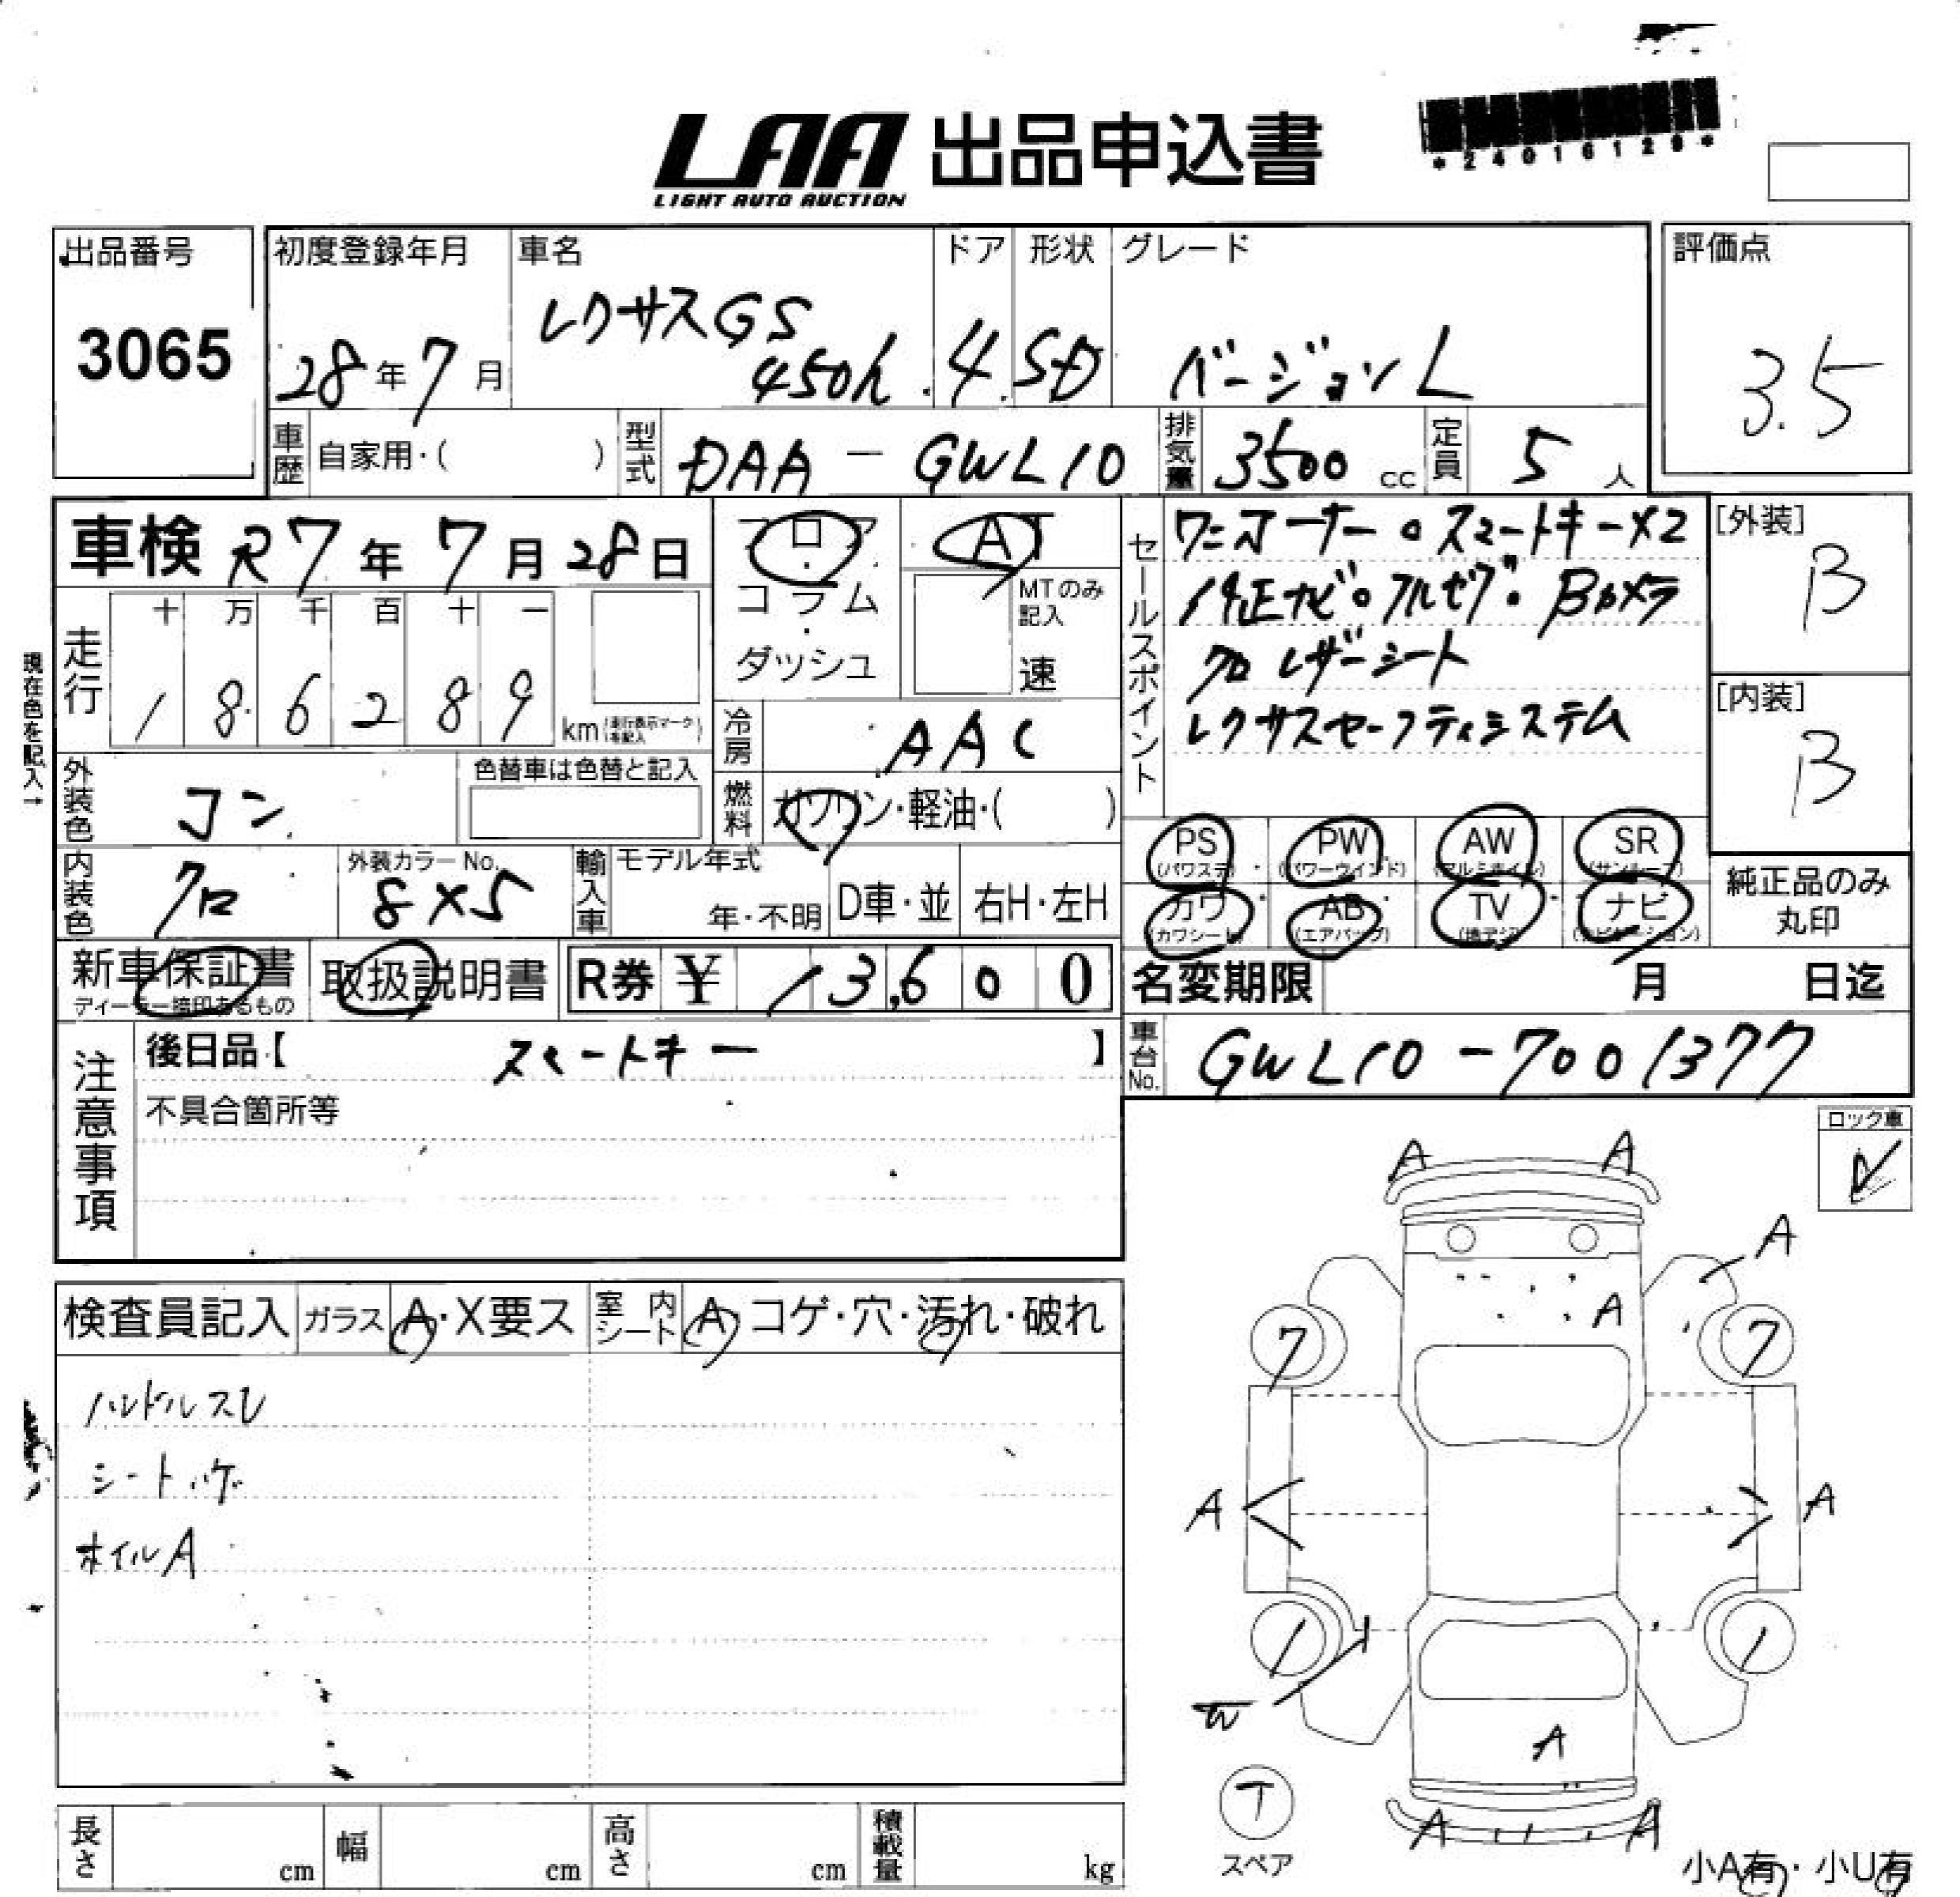 LAA 出品申込書
LIGHT AUTO AUCTION
*24016129*
出品番号
3065
初度登録年月
28年7月
車名
レクサスGS
450h
ドア
4
形状
SD
グレード
バージョンL
評価点
3.5
車歴 自家用・( )
型式 DAA-GWL10
排気量 3500 cc
定員 5 人
車検 R7年7月28日
走行
十 万 千 百 十 一
1 8 6 2 8 9 km (走行表示マークを記入)
現在色を記入→
フロア・コラム・ダッシュ
AT
MTのみ記入
速
冷房 AAC
燃料 ガソリン・軽油・( )
外装色 コン
色替車は色替と記入
内装色 クロ
外装カラーNo. 8X5
輸入車 モデル年式
年・不明 D車・並 右H・左H
新車保証書
ディーラー捺印あるもの
取扱説明書
R券 ¥ 13,600
セールスポイント
ワンオーナー。スマートキー×2
純正ナビ。フルセグ。Bカメラ
クロ レザーシート
レクサスセーフティシステム
[外装]
B
[内装]
B
PS (パワステ)・PW (パワーウインド) AW (アルミホイル) SR (サンルーフ)
カワ (カワシート)・AB (エアバッグ)・TV (地デジ)・ナビ (ナビゲーション)
純正品のみ
丸印
名変期限 月 日迄
車台No. GWL10-7001377
注意事項
後日品【 スマートキー 】
不具合箇所等
ロック車
検査員記入 ガラス A・X要ス 室内シート A コゲ・穴・汚れ・破れ
ハンドルスレ
シートハゲ
ホイルA
A A
A
A
7 7
A A
1 1
W
A
T
スペア
A A
長さ cm 幅 cm 高さ cm 積載量 kg
小A有・小U有